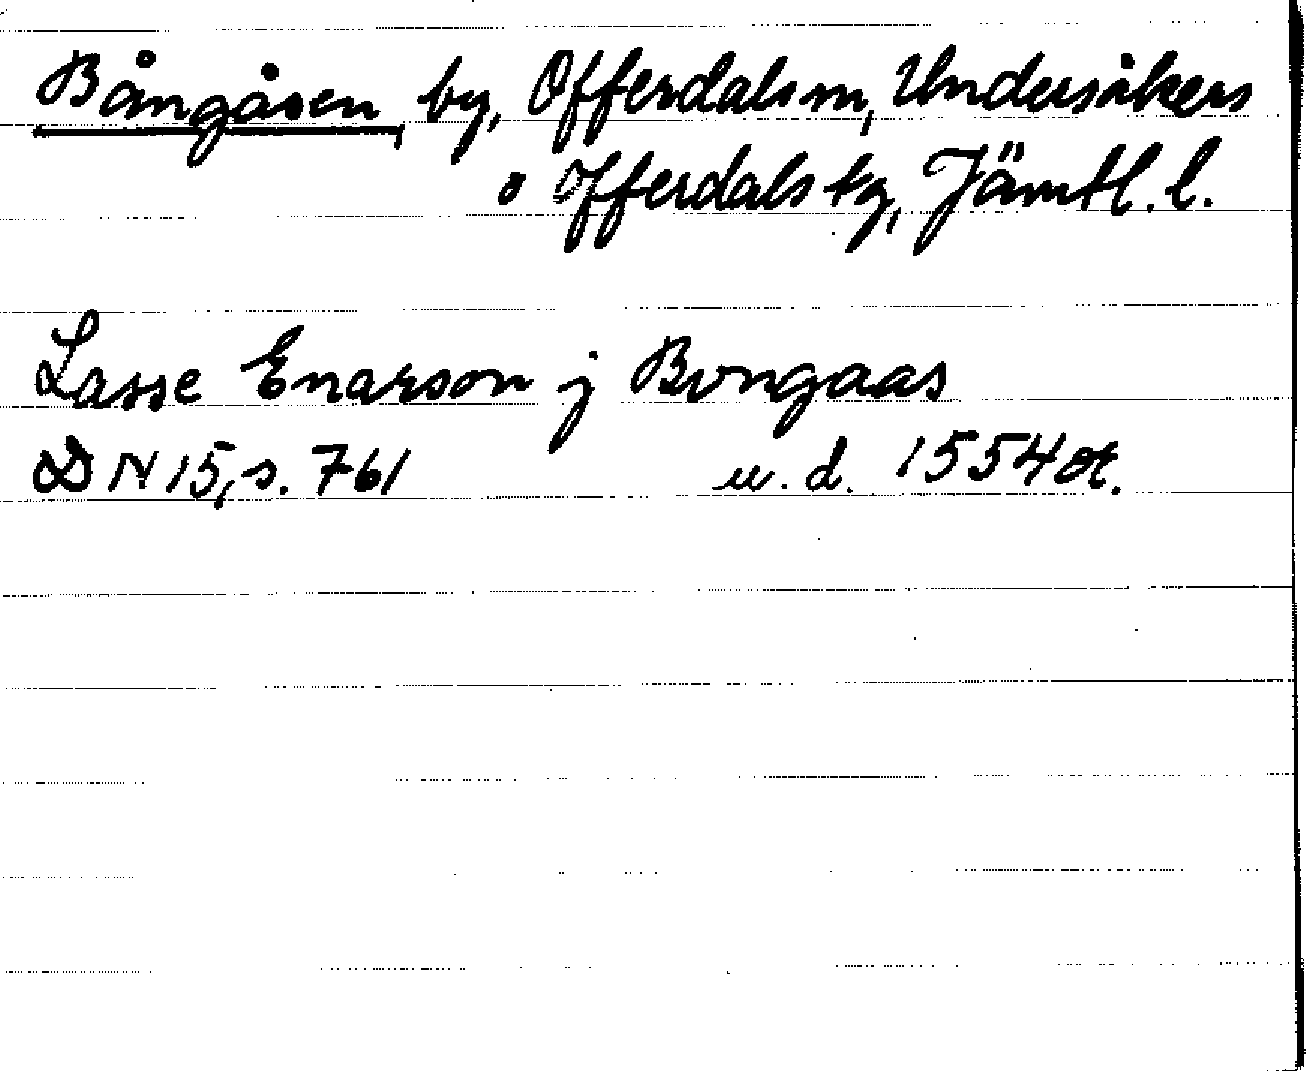 Bångåsen, by, Offerdals sn, Undersåkers
o Offerdals tg, Jämtl. l.
Lasse Enarson j Bongaas
DN 15, s. 761 u. d. 1554 or.